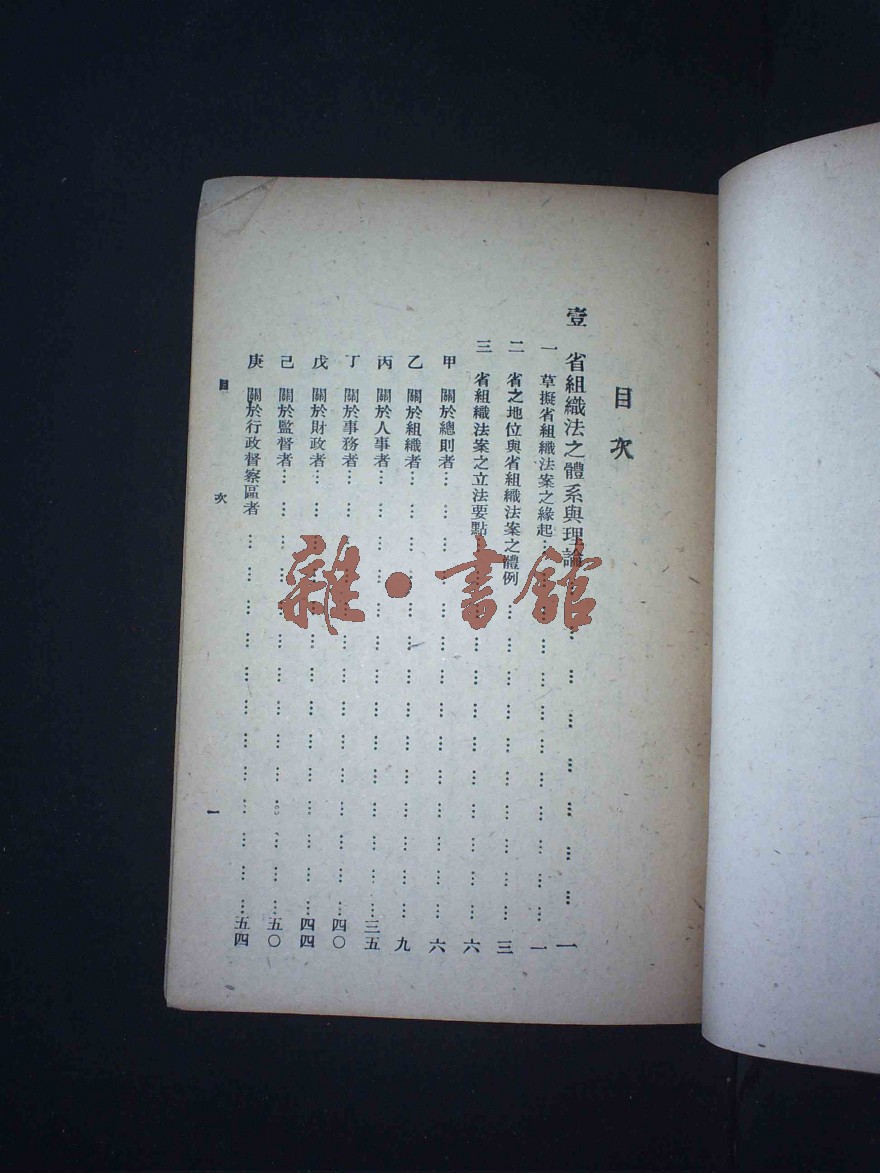 目次
壹 省組織法之體系與理論 … … … … … … 一
一 草擬省組織法案之緣起 … … … … … … … … … … … 一
二 省之地位與省組織法案之體例 … … … … … … … … … … 三
三 省組織法案之立法要點 … … … … … … … … … … 六
甲 關於總則者 … … … … … … … … … … … … … 六
乙 關於組織者 … … … … … … … … … … … … … 九
丙 關於人事者 … … … … … … … … … … … … … 三五
丁 關於事務者 … … … … … … … … … … … … … 四〇
戊 關於財政者 … … … … … … … … … … … … … 四四
己 關於監督者 … … … … … … … … … … … … … 五〇
庚 關於行政督察區者 … … … … … … … … … … … 五四
目 次 一
雜·書館